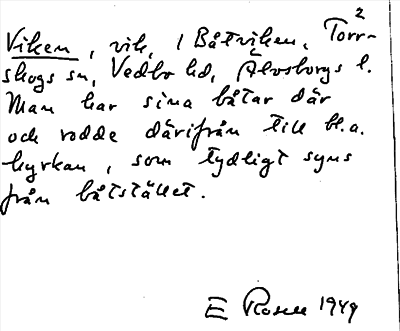 2
Viken, vik, i Båtviken, Torr-
skogs sn, Vedbo hd, Älvsborgs l.
Man har sina båtar där
och rodde därifrån till bl.a.
kyrkan, som tydligt syns
från båtstället.
E Rosell 1949